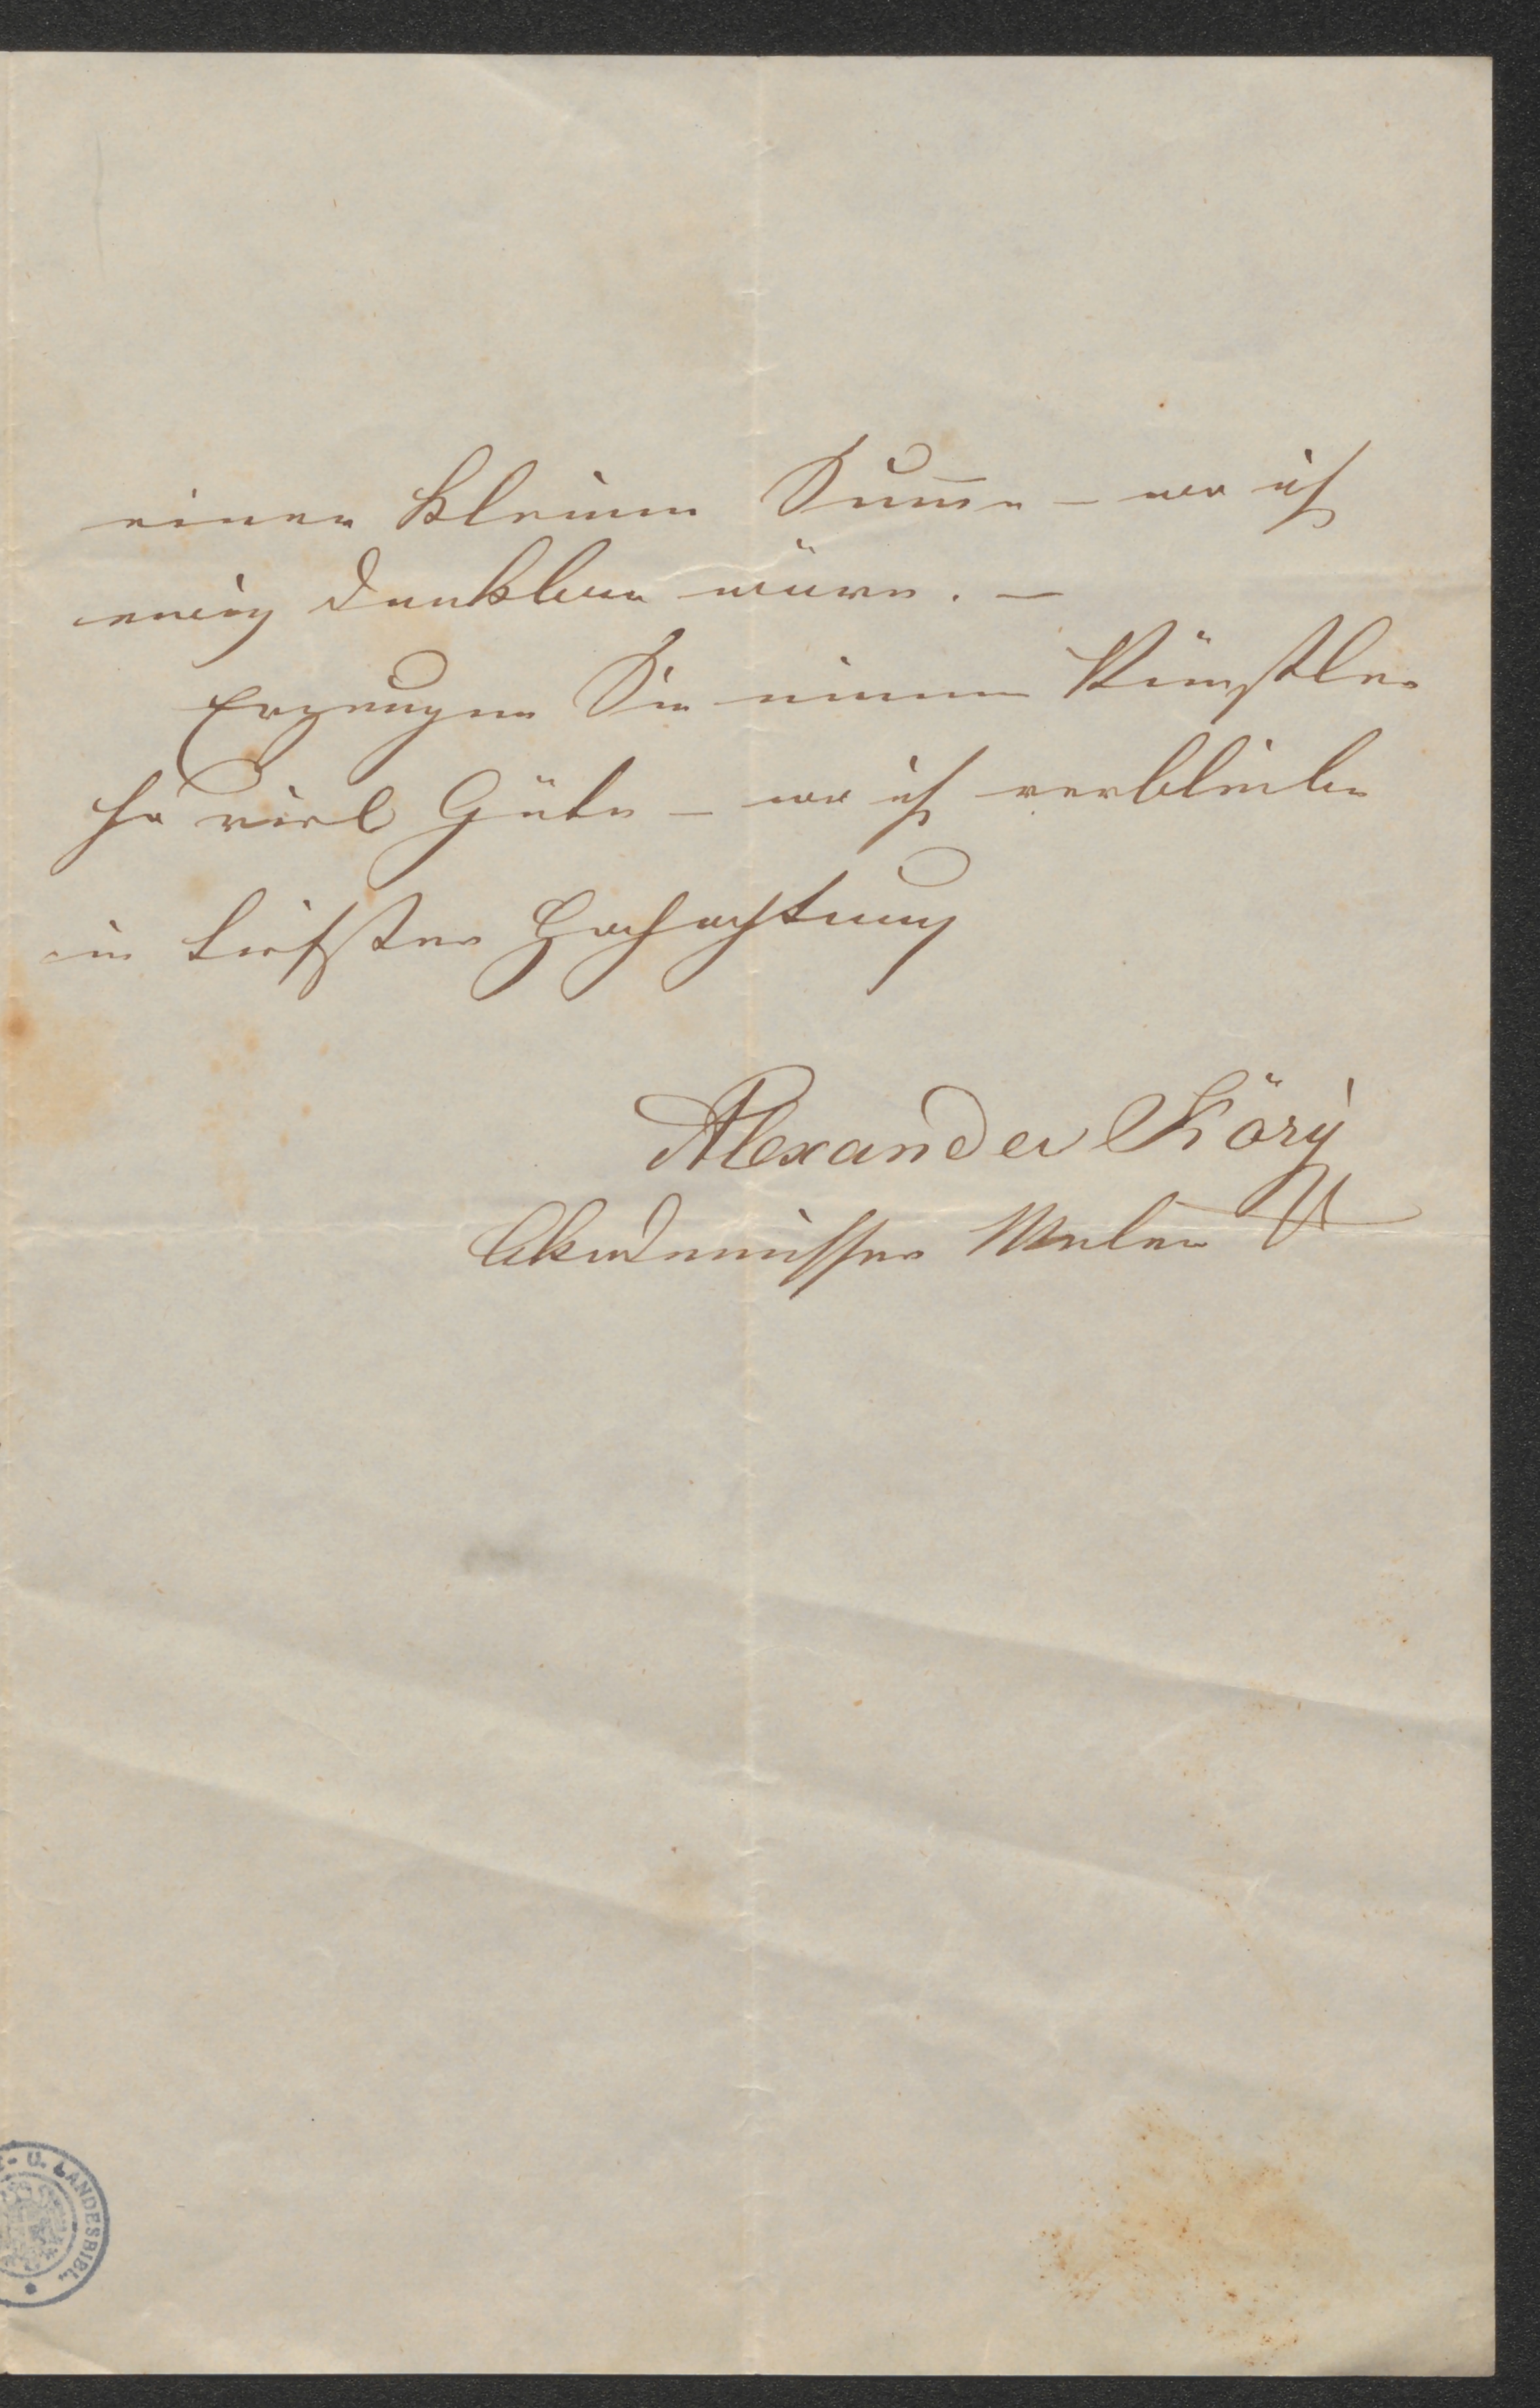 einer kleinen Sum̅e – wo ich
ewig dankbar wäre. –
Erzeugen Sie einem Künstler
so viel Güte – wo ich verbleibe
in tiefster Hochachtung
Alexander Köry
Akademischer Maler
U. LANDESBIBL.